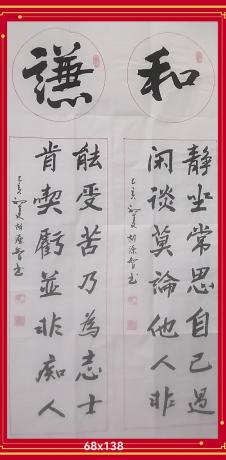 和
静坐常思自己過
闲谈莫論他人非
己亥
謙
能受苦乃為志士
肯喫虧並非痴人
己亥
68x138